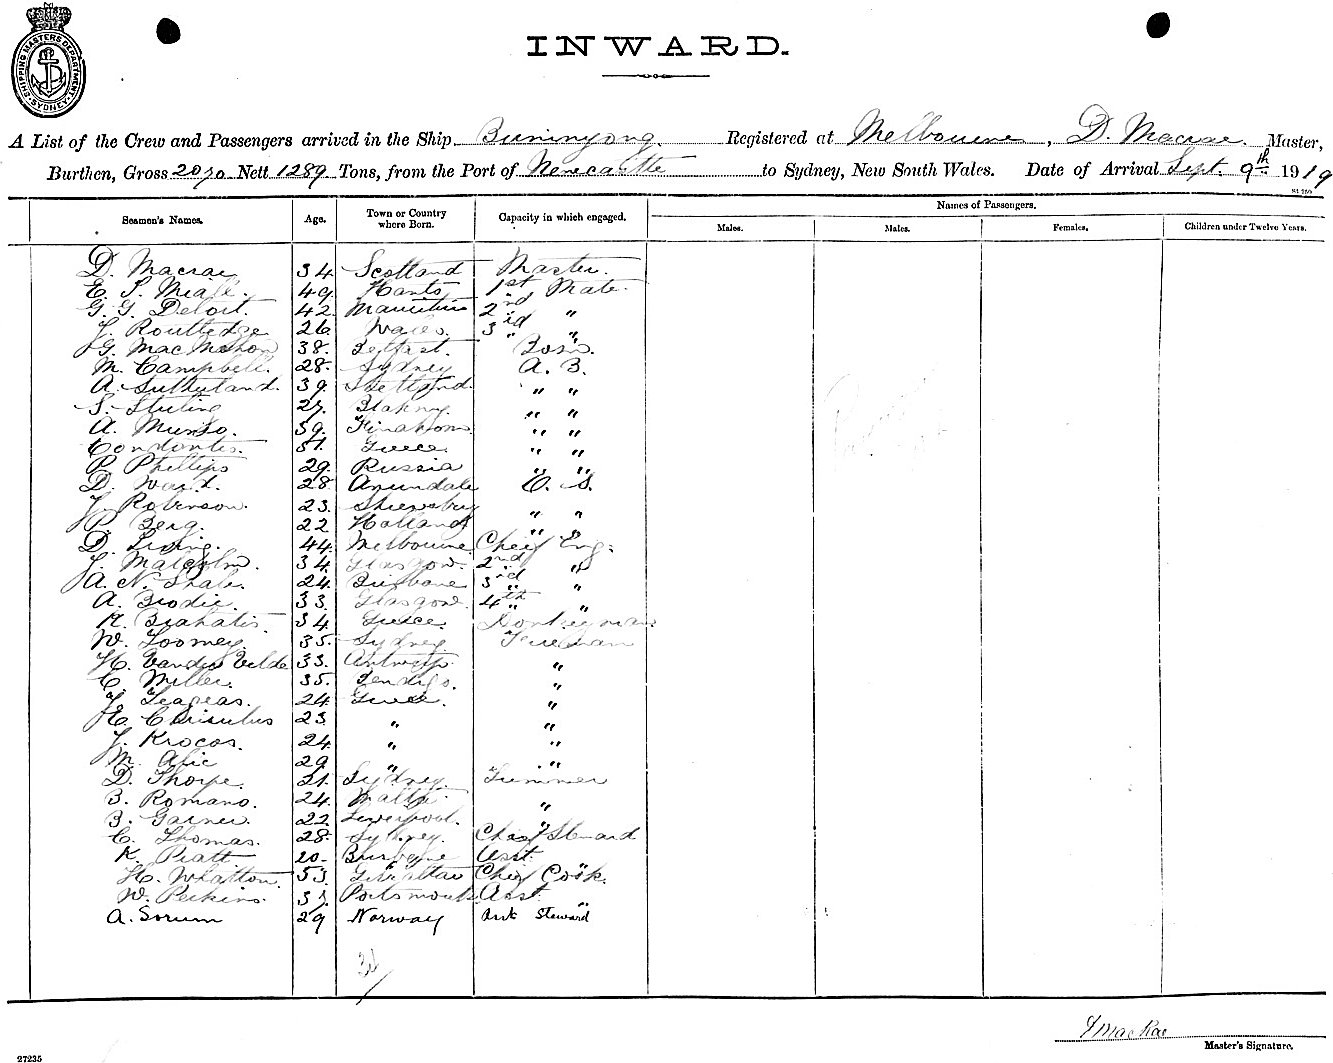 SHIPPING MASTERS DEPARTMENT
SYDNEY
INWARD.
A List of the Crew and Passengers arrived in the Ship Buninyong. Registered at Melbourne, D. Macrae. Master,
Burthen, Gross 2070 Nett 1289 Tons, from the Port of Newcastle to Sydney, New South Wales. Date of Arrival Sept. 9th 1919
Seamen's Names. Age. Town or Country where Born. Capacity in which engaged. Names of Passengers.
Males. Males. Females. Children under Twelve Years.
D. Macrae 34 Scotland Master.
E. S. Meall. 49. Hants 1st Mate.
G. G. Deloit. 42. Mauritius 2nd "
J. Routledge 26 Wales. 3rd "
G. MacMahon 38. Belfast. Bosn.
M. Campbell. 28. Sydney A. B.
A. Sutherland. 39. Shetland " "
S. Stirling 27. " "
A. Munro. 39. " "
Greece. " "
P. Phillips 29. Russia " "
D. Ward. 28. Annandale O. S.
J. Robinson. 23. Shrewsbury " "
P. Berg. 22 Holland " "
D. 44. Melbourne Chief Eng.
J. Malcolm. 34. Glasgow. 2nd "
A. N. 24. Brisbane 3rd "
A. Brodie. 33. Glasgow. 4th "
K. 34. Greece. Donkeyman
W. Toomey. 35. Sydney. Fireman
H. Vander Velde 33. Antwerp. "
C. Miller. 35. Bendigo. "
J. 24. Greece. "
23. " "
J. Krocos. 24. " "
M. 29. " "
D. Thorpe. 21. Sydney. Trimmer
B. Romano. 24. Malta. "
B. Garner. 22. Liverpool. "
C. Thomas. 28. Sydney. Chief Steward
K. Pratt 20. Asst. "
H. Whatton. 53. Gibraltar Chief Cook.
W. Perkins. Portsmouth. Asst. "
A. Sorum 29 Norway Asst Steward
34
J MacRae
Master's Signature.
27235